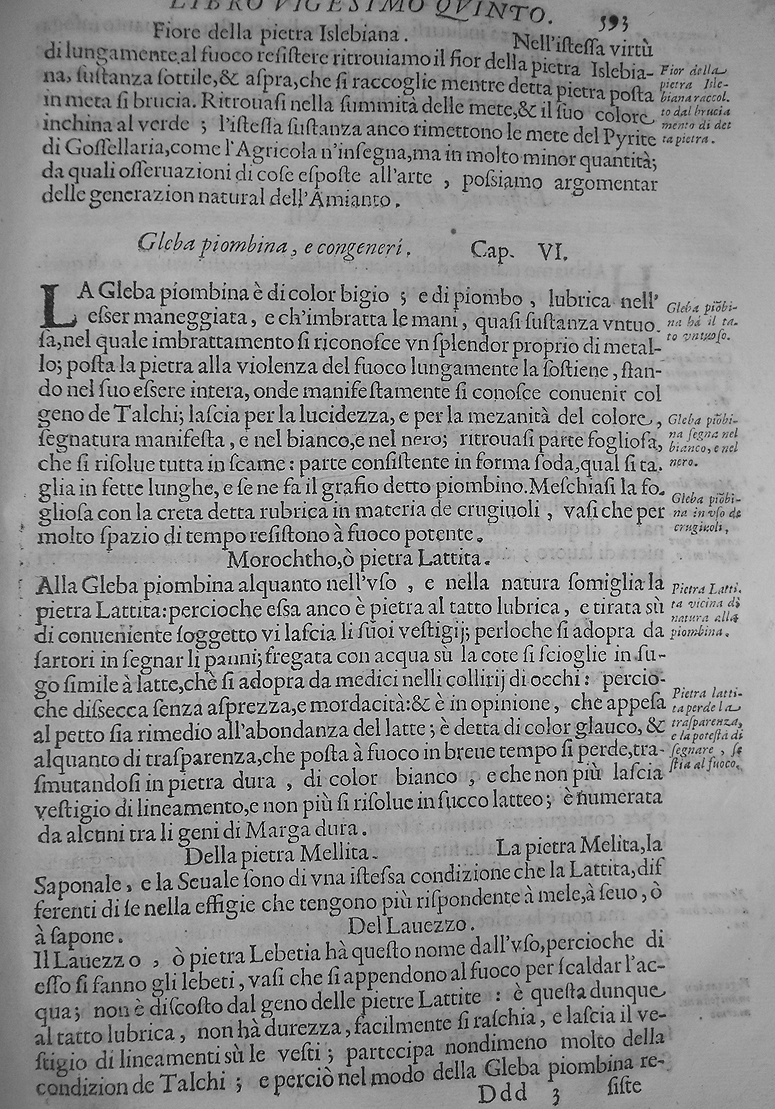 LIBRO VIGESIMO QVINTO. 593
Fiore della pietra Islebiana. Nell'iſteſſa virtù
di lungamente al fuoco reſiſtere ritrouiamo il fior della pietra Islebia-
na, ſuſtanza ſottile,& aſpra, che ſi raccoglie mentre detta pietra poſta
in meta ſi brucia. Ritrouaſi nella ſummità delle mete,& il ſuo colore
inchina al verde ; l'iſteſſa ſuſtanza anco rimettono le mete del Pyrite
di Goſſellaria, come l'Agricola n'inſegna, ma in molto minor quantità;
da quali oſſeruazioni di coſe eſpoſte all'arte , poſsiamo argomentar
delle generazion natural dell'Amianto.
Fior della
pietra Isle-
biana raccol.
to dal brucia
mento di det
ta pietra.
Gleba piombina, e congeneri. Cap. VI.
LA Gleba piombina è di color bigio ; e di piombo , lubrica nell'
eſſer maneggiata, e ch'imbratta le mani, quaſi ſuſtanza vntuo.
ſa, nel quale imbrattamento ſi riconoſce vn ſplendor proprio di metal-
lo; poſta la pietra alla violenza del fuoco lungamente la ſoſtiene, ſtan-
do nel ſuo eſsere intera, onde manifeſtamente ſi conoſce conuenir col
geno de Talchi; laſcia per la lucidezza, e per la mezanità del colore,
ſegnatura manifeſta, e nel bianco, e nel nero; ritrouaſi parte foglioſa,
che ſi riſolue tutta in ſcame : parte conſiſtente in forma ſoda, qual ſi ta.
glia in fette lunghe, e ſe ne fa il grafio detto piombino. Meſchiaſi la fo.
glioſa con la creta detta rubrica in materia de crugiuoli , vaſi che per
molto ſpazio di tempo reſiſtono à fuoco potente.
Gleba piõbi-
na hà il ta.
to vntuoſo.
Gleba piõbi-
na ſegna nel
bianco, e nel
nero.
Gleba piõbi-
na in vſo de
crugiuoli,
Morochtho, ò pietra Lattita.
Alla Gleba piombina alquanto nell'vſo , e nella natura ſomiglia la
pietra Lattita: percioche eſsa anco è pietra al tatto lubrica, e tirata sù
di conueniente ſoggetto vi laſcia li ſuoi veſtigij; perloche ſi adopra da
ſartori in ſegnar li panni; fregata con acqua sù la cote ſi ſcioglie in ſu-
go ſimile à latte, chè ſi adopra da medici nelli collirij di occhi : percio-
che diſsecca ſenza aſprezza, e mordacità: & è in opinione, che appeſa
al petto ſia rimedio all'abondanza del latte ; è detta di color glauco, &
alquanto di traſparenza, che poſta à fuoco in breue tempo ſi perde, tra-
ſmutandoſi in pietra dura , di color bianco , e che non più laſcia
veſtigio di lineamento, e non più ſi riſolue in ſucco latteo; è numerata
da alcuni tra li geni di Marga dura.
Pietra Latti.
ta vicina di
natura alla
piombina.
Pietra latti-
ta perde la
traſparenza,
e la poteſtà di
ſegnare , ſe
ſtia al fuoco.
Della pietra Mellita. La pietra Melita, la
Saponale, e la Seuale ſono di vna iſteſsa condizione che la Lattita, diſ
ferenti di ſe nella effigie che tengono più riſpondente à mele, à ſeuo, ò
à ſapone. Del Lauezzo.
Il Lauezzo , ò pietra Lebetia hà queſto nome dall'vſo, percioche di
eſſo ſi fanno gli lebeti, vaſi che ſi appendono al fuoco per ſcaldar l'ac-
qua; non è diſcoſto dal geno delle pietre Lattite : è queſta dunque
al tatto lubrica, non hà durezza, facilmente ſi raſchia, e laſcia il ve-
ſtigio di lineamenti sù le veſti ; partecipa nondimeno molto della
condizion de Talchi ; e perciò nel modo della Gleba piombina re-
Ddd 3 ſiſte